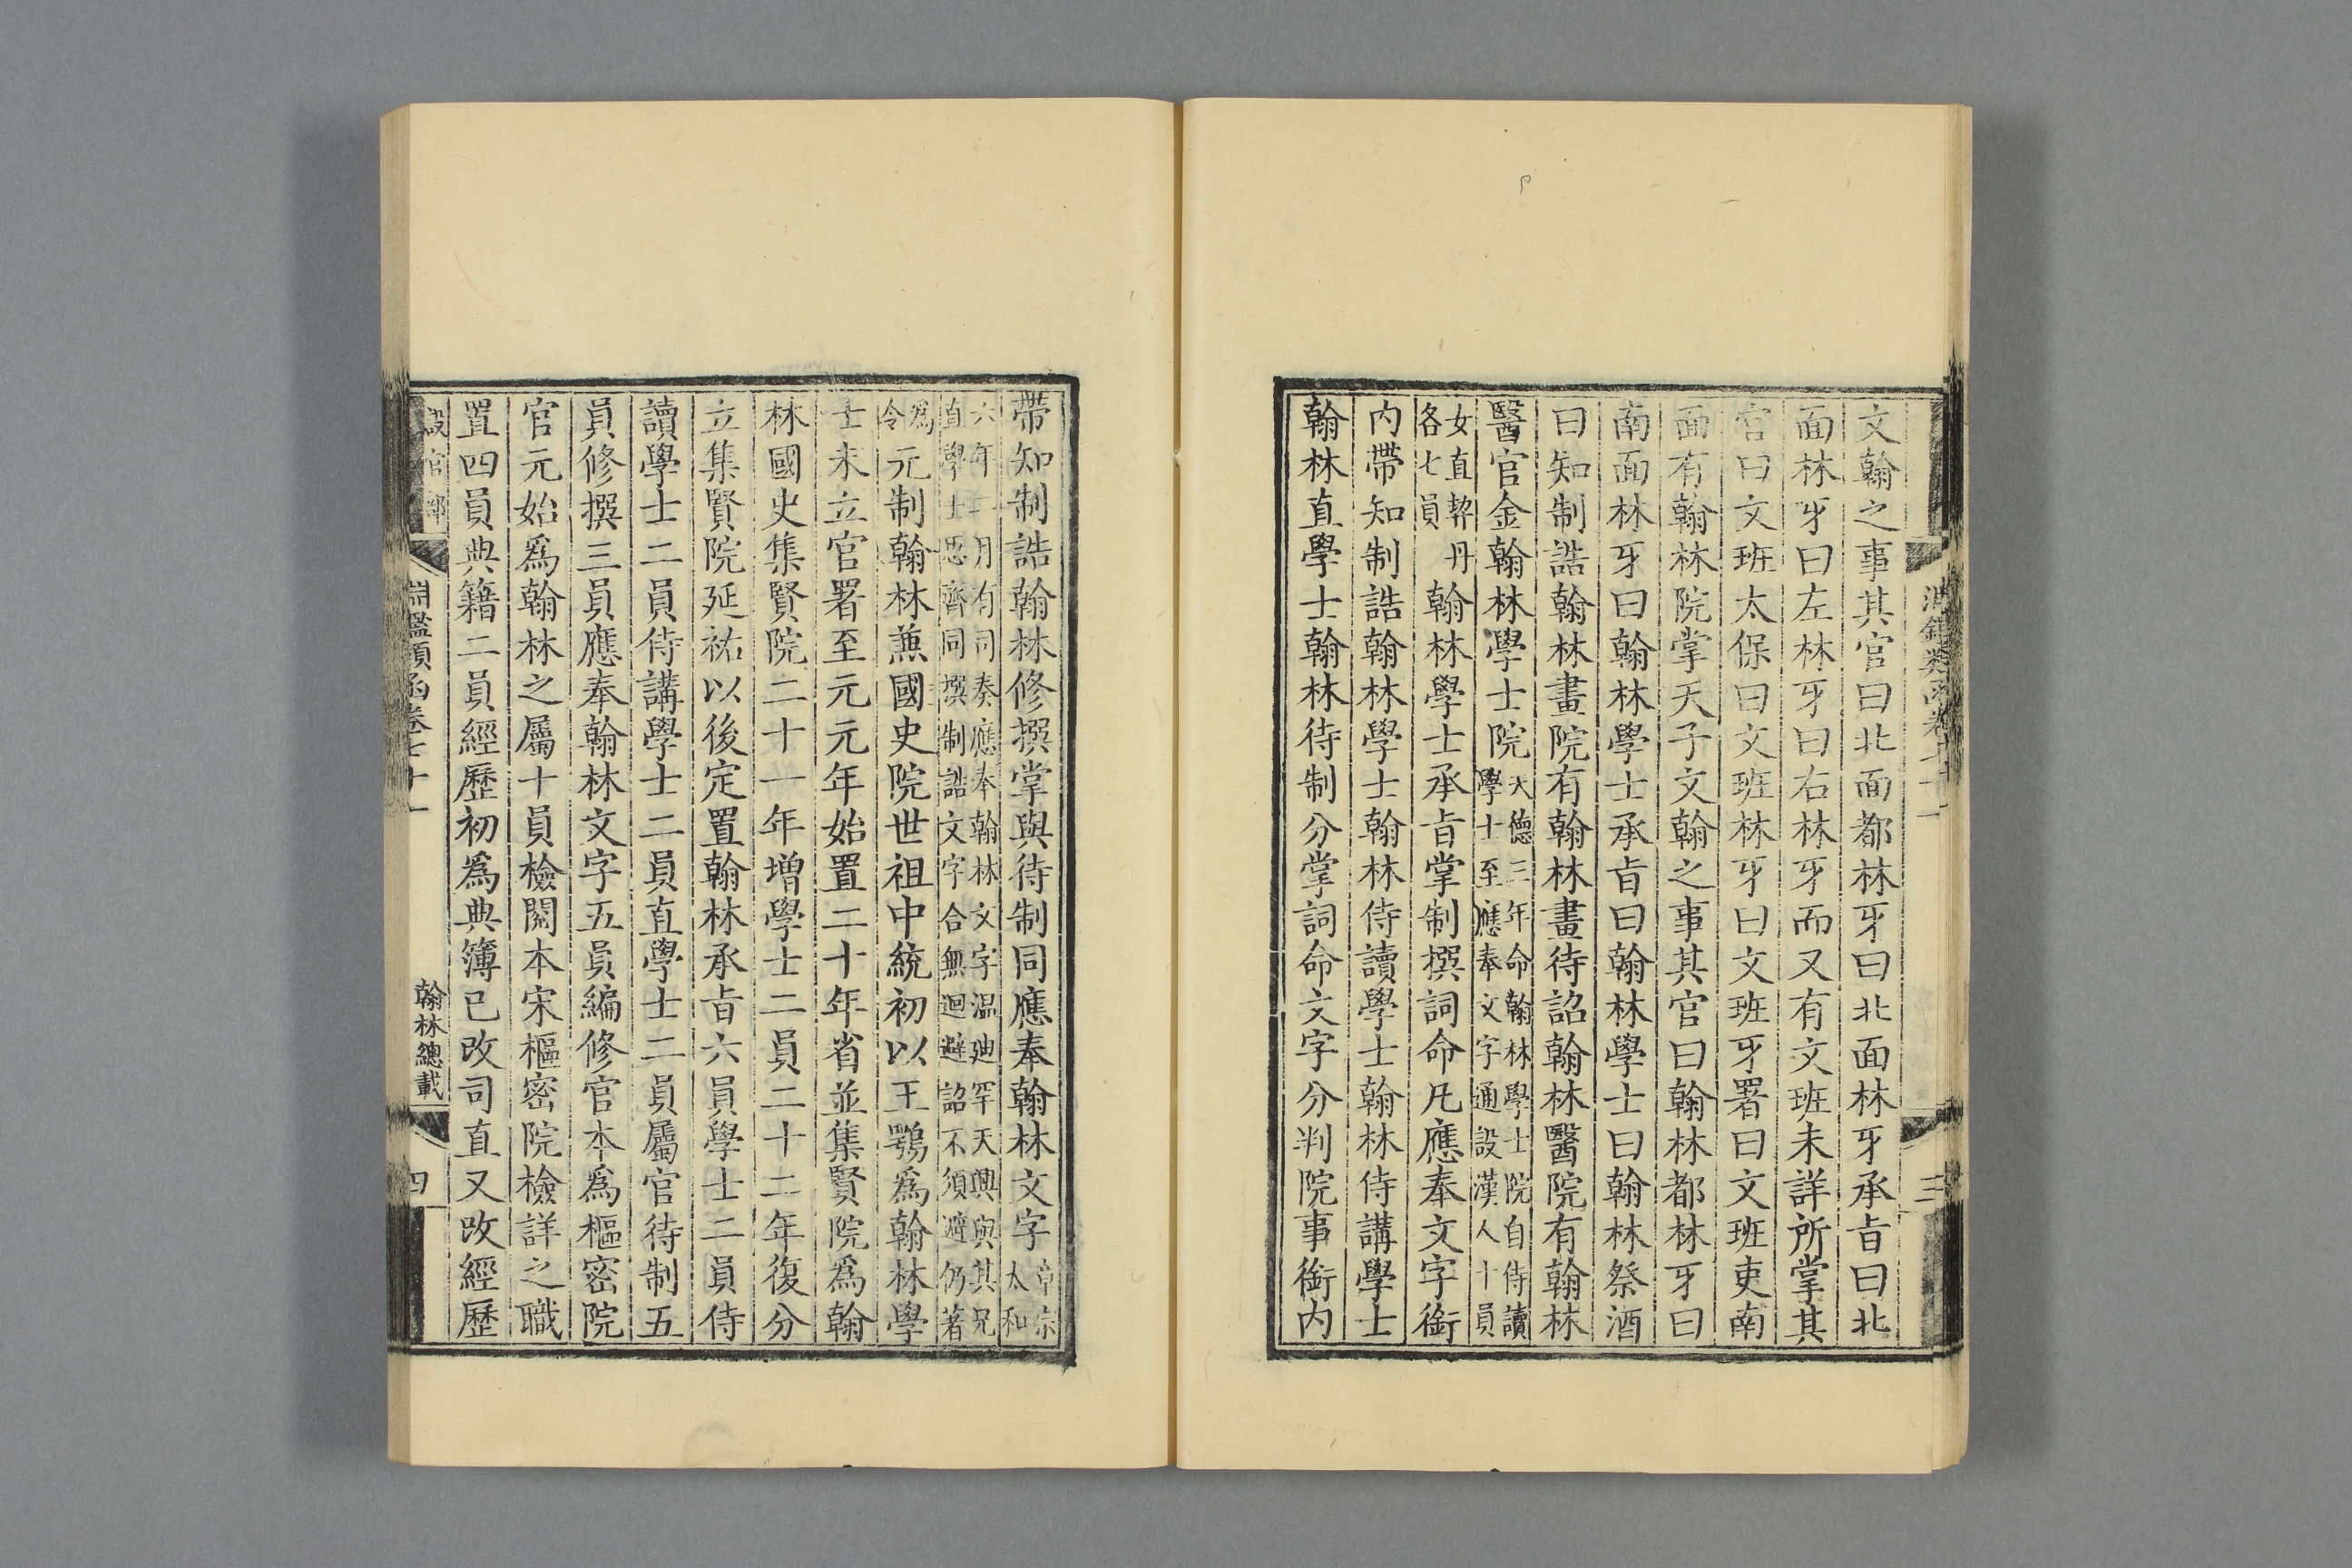 淵鑑類函卷七十一
三
文翰之事其官曰北面都林牙曰北面林牙承旨曰北
面林牙曰左林牙曰右林牙而又有文班未詳所掌其
官曰文班太保曰文班林牙曰文班牙署曰文班吏南
面有翰林院掌天子文翰之事其官曰翰林都林牙曰
南面林牙曰翰林學士承旨曰翰林學士曰翰林祭酒
曰知制誥翰林畫院有翰林畫待詔翰林醫院有翰林
醫官金翰林學士院
天德三年命翰林學士院自侍讀
學士至應奉文字通設漢人十員
女直契丹
各七員
翰林學士承旨掌制撰詞命凡應奉文字銜
内帶知制誥翰林學士翰林侍讀學士翰林侍講學士
翰林直學士翰林待制分掌詞命文字分判院事銜内
帶知制誥翰林修撰掌與待制同應奉翰林文字
章宗
太和
六年二月有司奏應奉翰林文字温廸罕天興與其兄
直學士思齊同撰制誥文字合無迴避詔不須避仍著
爲
令
元制翰林兼國史院世祖中統初以王鶚爲翰林學
士未立官署至元元年始置二十年省並集賢院爲翰
林國史集賢院二十一年增學士二員二十二年復分
立集賢院延祐以後定置翰林承旨六員學士二員侍
讀學士二員侍講學士二員直學士二員屬官待制五
員修撰三員應奉翰林文字五員編修官本爲樞密院
官元始爲翰林之屬十員檢閱本宋樞密院檢詳之職
置四員典籍二員經歷初爲典簿已改司直又改經歷
設官部
淵鑑類函卷七十一
翰林總載
四